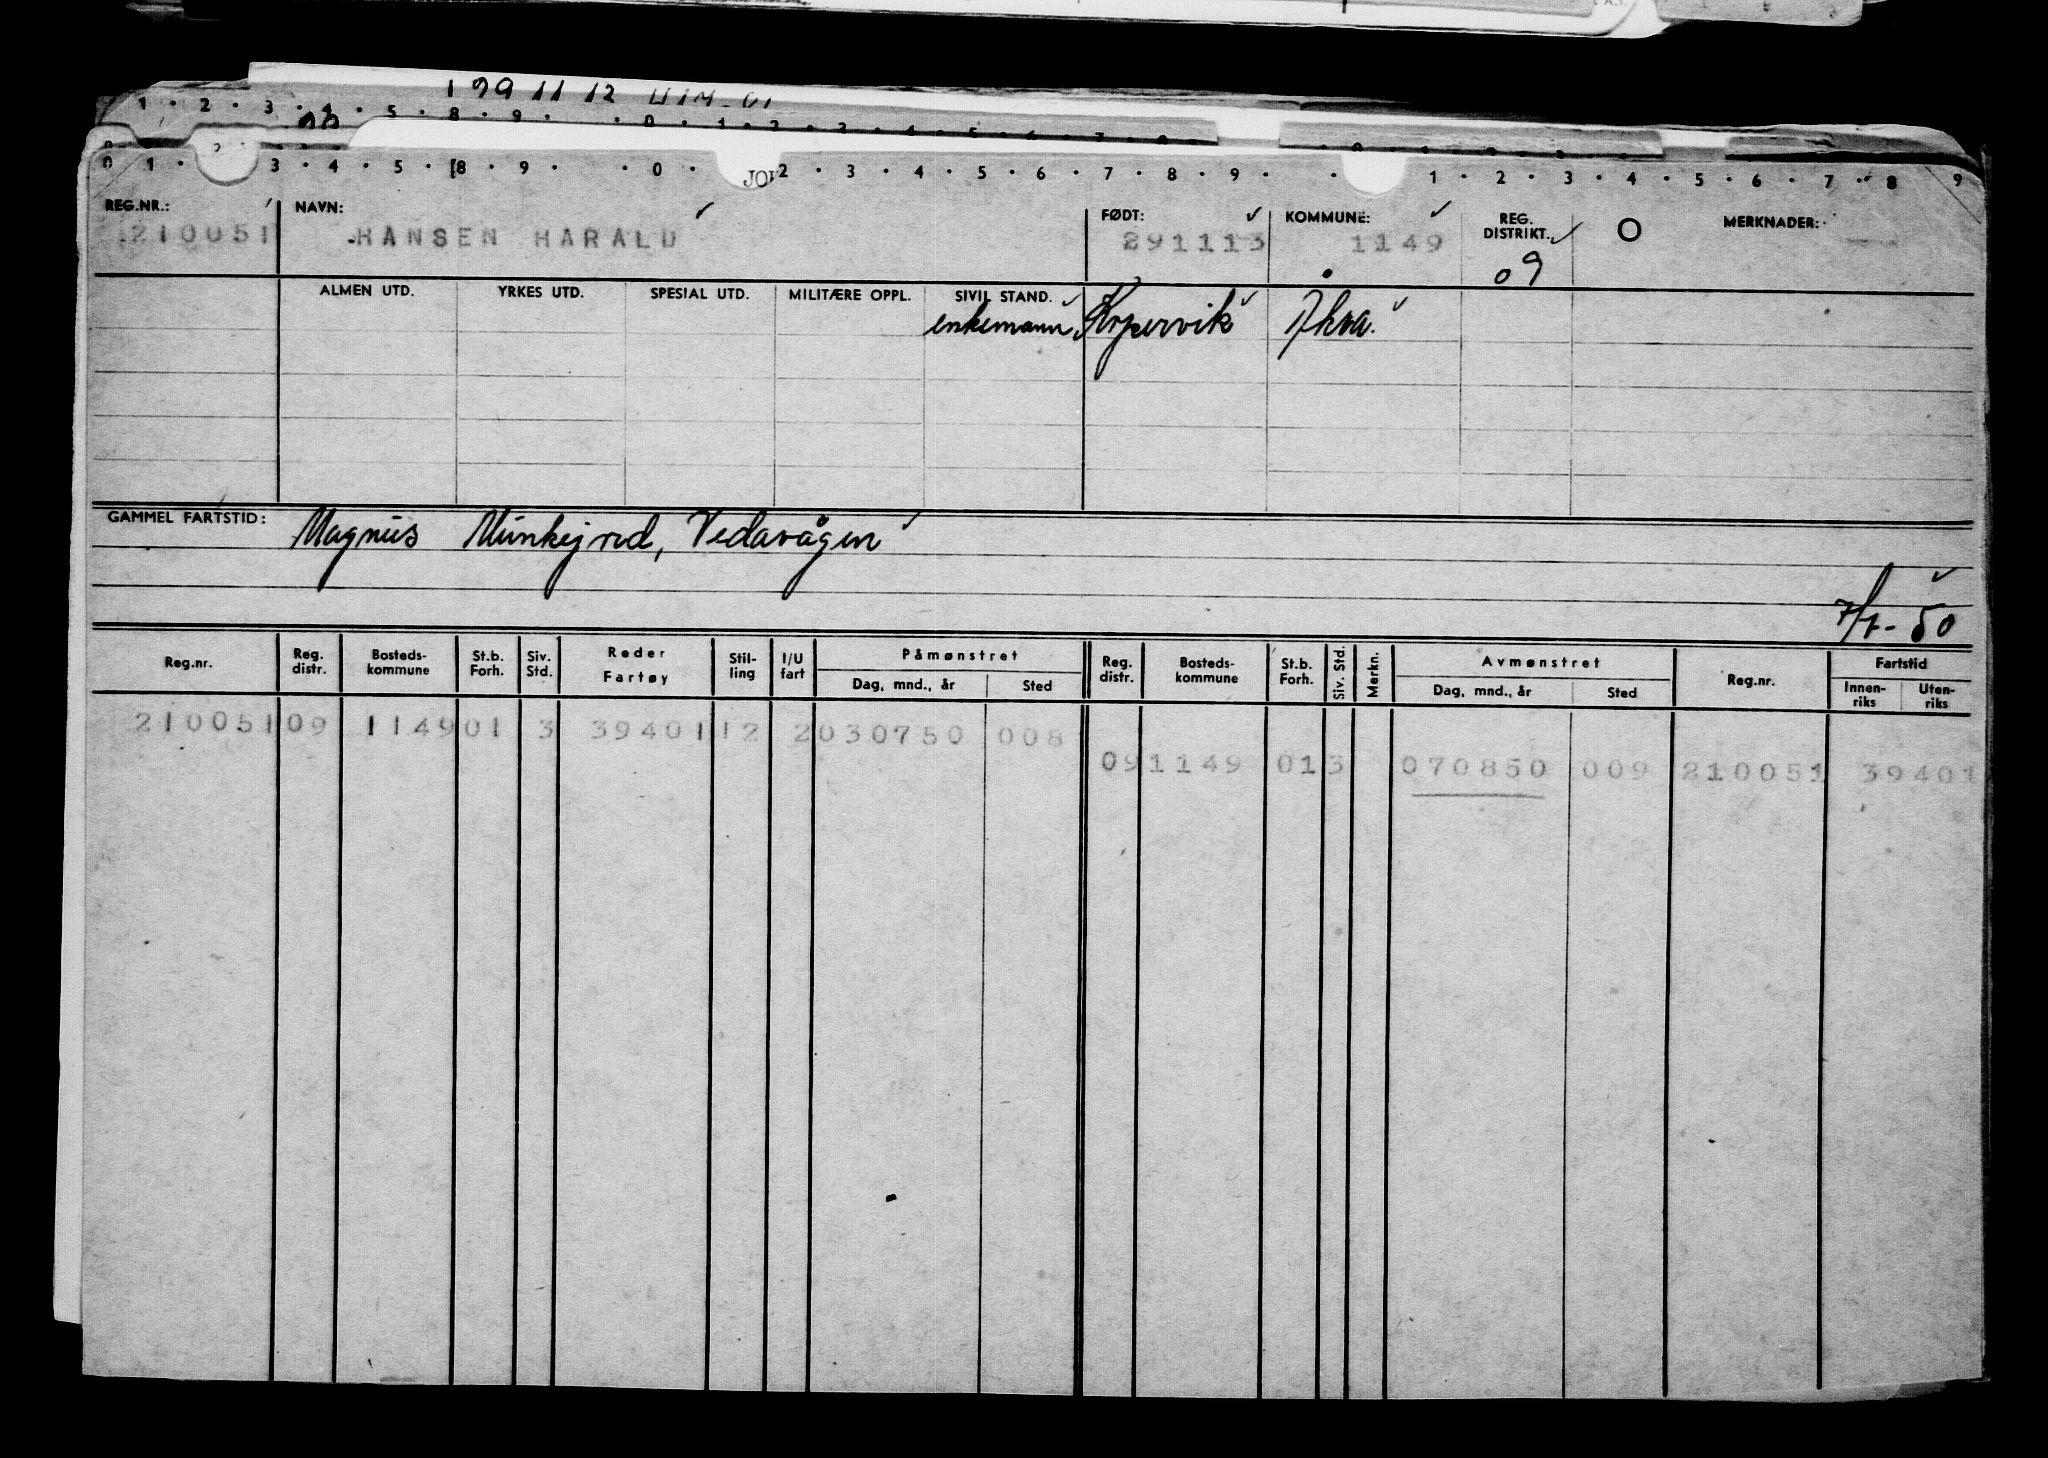 1 99 11 12
1 · 2 · 3 · 4 · 5 · 8 · 9 · · 0 · 1 · 2 · 3 · 4 · 5 · 6 · 7
0 1 · 3 · 4 · 5 · 8 · 9 · · 0 · JOH 2 · 3 · 4 · 5 · 6 · 7 · 8 · 9 · · 1 · 2 · 3 · 4 · 5 · 6 · 7 · 8 9
REG.NR.: NAVN: FØDT: KOMMUNE: REG. DISTRIKT. O MERKNADER:
210051 HANSEN HARALD 291113 1149 09
ALMEN UTD. YRKES UTD. SPESIAL UTD. MILITÆRE OPPL. SIVIL STAND.
enkemann Kopervik Åkra.
GAMMEL FARTSTID: Magnus Munkejord, Vedavågen
7/7-50
Reg.nr. Reg. distr. Bosteds- kommune St.b. Forh. Siv. Std. Reder Fartøy Stil- ling I/U fart Påmønstret Reg. distr. Bosteds- kommune St.b. Forh. Siv. Std. Merkn. Avmønstret Reg.nr. Fartstid
Dag, mnd., år Sted Dag, mnd., år Sted Innen- riks Uten- riks
210051 09 1149 01 3 39401 12 2 030750 008
09 1149 01 3 070850 009 210051 39401